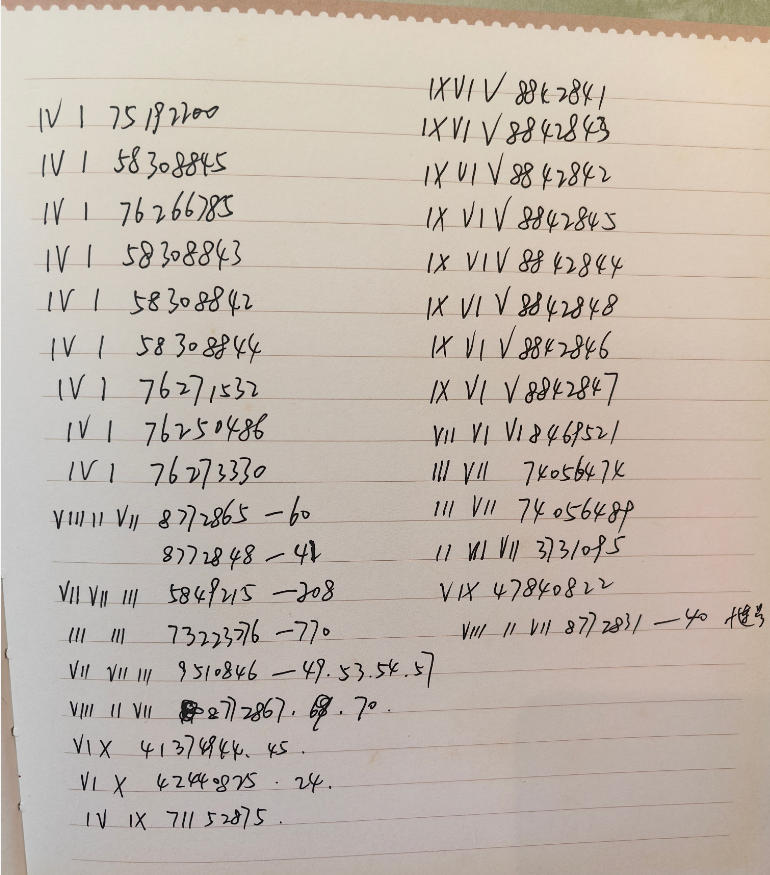 IV I 75192200
IV I 58308845
IV I 76266785
IV I 58308843
IV I 58308842
IV I 58308844
IV I 76271532
IV I 76250486
IV I 76273330
VIII II VII 8772865 — 60
8772848 — 41
VII VII III 5849215 — 208
III III 73223776 — 770
VII VII III 9510846 — 49. 53. 54. 57
VIII II VII 8772867. 69. 70.
VI X 41374944. 45.
VI X 42440825. 24.
IV IX 71152875.
IX VI V 8842841
IX VI V 8842843
IX VI V 8842842
IX VI V 8842845
IX VI V 8842844
IX VI V 8842848
IX VI V 8842846
IX VI V 8842847
VII VI VI 8469521
III VII 74056474
III VII 74056489
II VII VII 3731095
VIX 47840822
VIII II VII 8772831 — 40